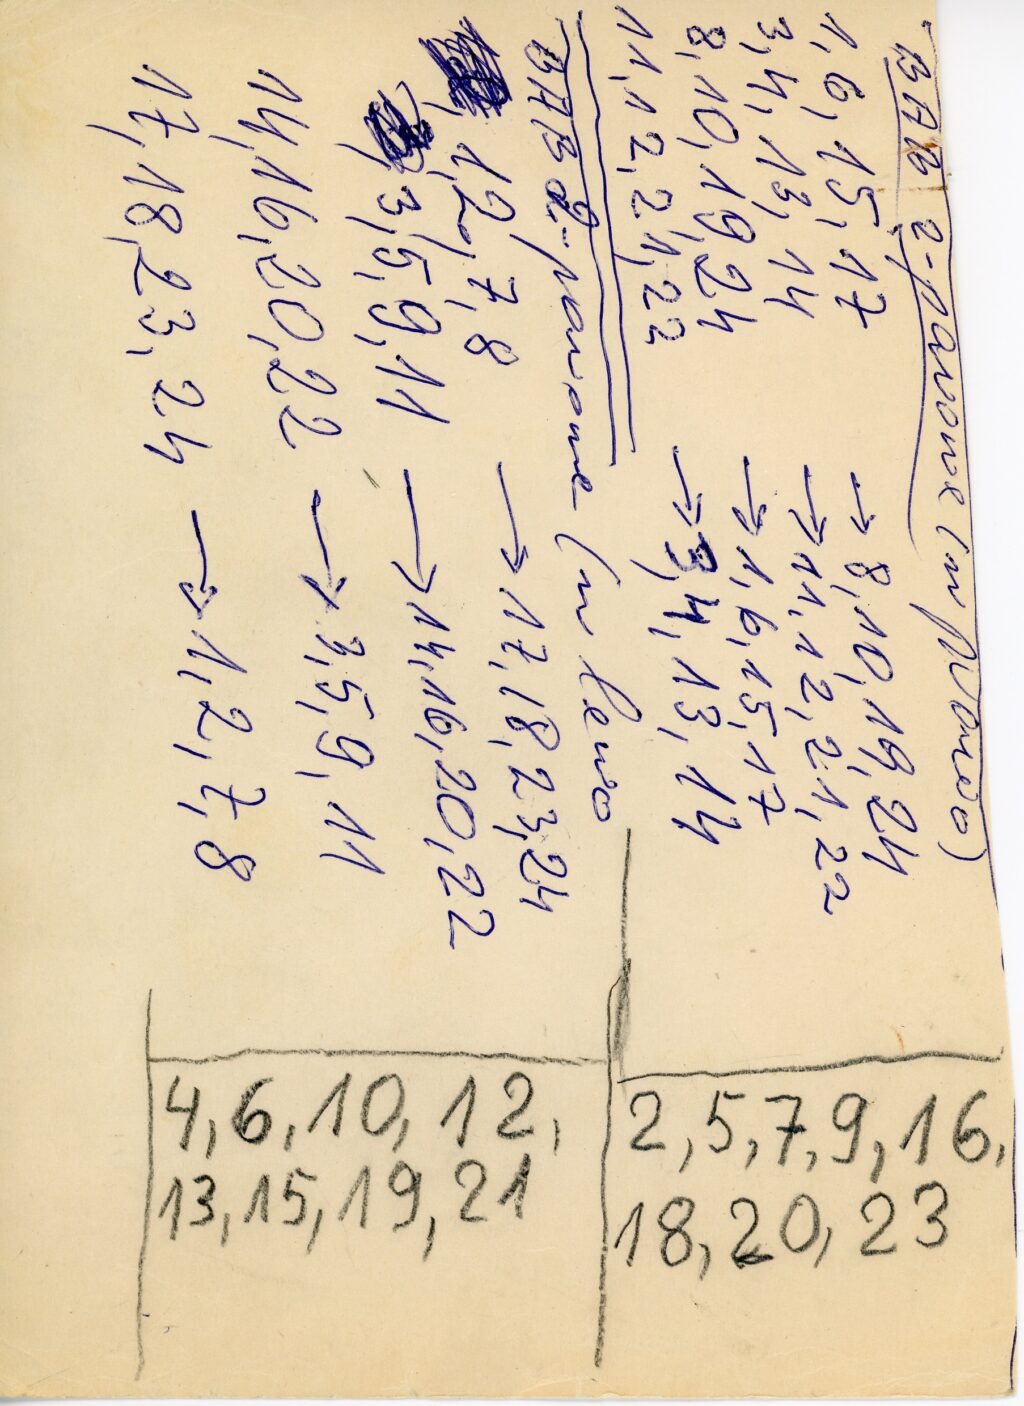 ВАВ 2-рамоне (на право)
1, 6, 15, 17 → 8, 10, 19, 24
3, 4, 13, 14 → 11, 12, 21, 22
8, 10, 19, 24 → 1, 6, 15, 17
11, 12, 21, 22 → 3, 4, 13, 14
ВАВ 2-рамоне (на лево
1, 2, 7, 8 → 17, 18, 23, 24
3, 5, 9, 11 → 14, 16, 20, 22
14, 16, 20, 22 → 3, 5, 9, 11
17, 18, 23, 24 → 1, 2, 7, 8
4, 6, 10, 12,
13, 15, 19, 21
2, 5, 7, 9, 16,
18, 20, 23